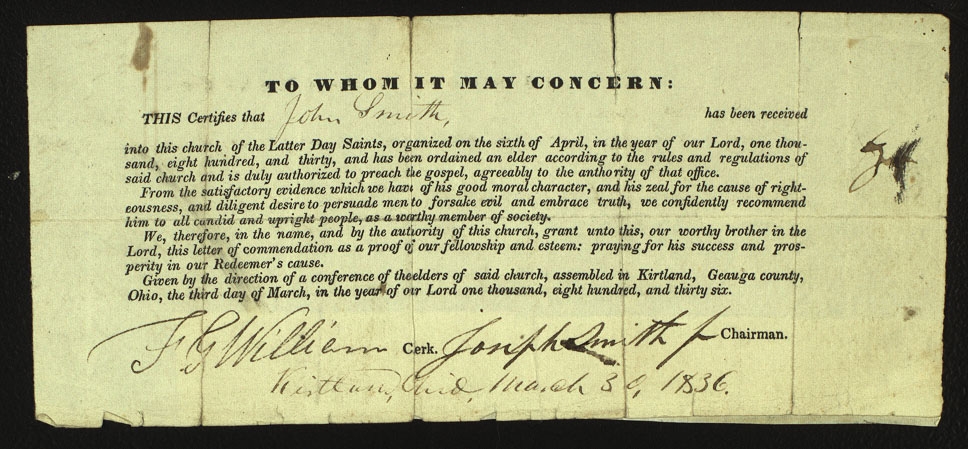 TO WHOM IT MAY CONCERN:
THIS Certifies that John Smith, has been received
into this church of the Latter Day Saints, organized on the sixth of April, in the year of our Lord, one thou-
sand, eight hundred, and thirty, and has been ordained an elder according to the rules and regulations of
said church and is duly authorized to preach the gospel, agreeably to the anthority of that office.
From the satisfactory evidence which we have of his good moral character, and his zeal for the cause of right-
eousness, and diligent desire to persuade men to forsake evil and embrace truth, we confidently recommend
him to all candid and upright people, as a worthy member of society.
We, therefore, in the name, and by the authority of this church, grant unto this, our worthy brother in the
Lord, this letter of commendation as a proof of our fellowship and esteem: praying for his success and pros-
perity in our Redeemer's cause.
Given by the direction of a conference of theelders of said church, assembled in Kirtland, Geauga county,
Ohio, the third day of March, in the year of our Lord one thousand, eight hundred, and thirty six.
F G William Clerk. Joseph Smith Jr Chairman.
Kirtland, Ohio, March 30, 1836.